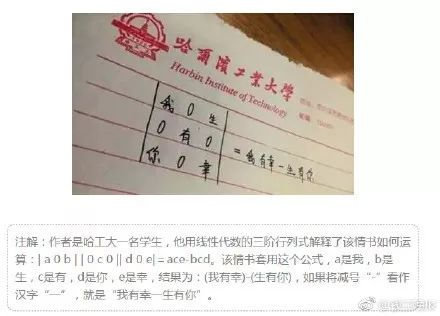 哈爾濱工業大學
Harbin Institute of Technology
我 0 生
0 有 0
你 0 幸
=我有幸一生有你
注解：作者是哈工大一名学生，他用线性代数的三阶行列式解释了该情书如何运
算：| a 0 b | | 0 c 0 || d 0 e| = ace-bcd。该情书套用这个公式，a是我，b是
生，c是有，d是你，e是幸，结果为：(我有幸)-(生有你)，如果将减号“-”看作
汉字“一”，就是“我有幸一生有你”。